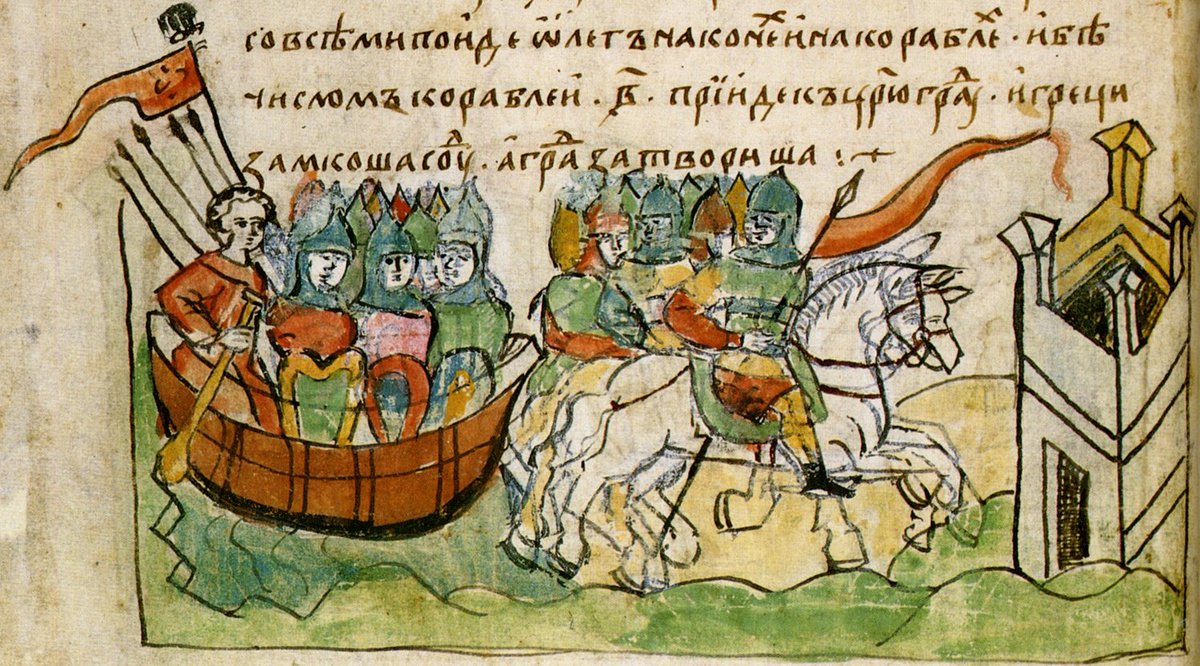 со всѣми поиде ѡлегъ на конеⷯ и на кораблеⷯ · и бѣ
числомъ кораблеи · в҃ · прїиде къ цр҃ю граⷣу · и греци
замкоша соуⷣ · а граⷣ затвориша :+